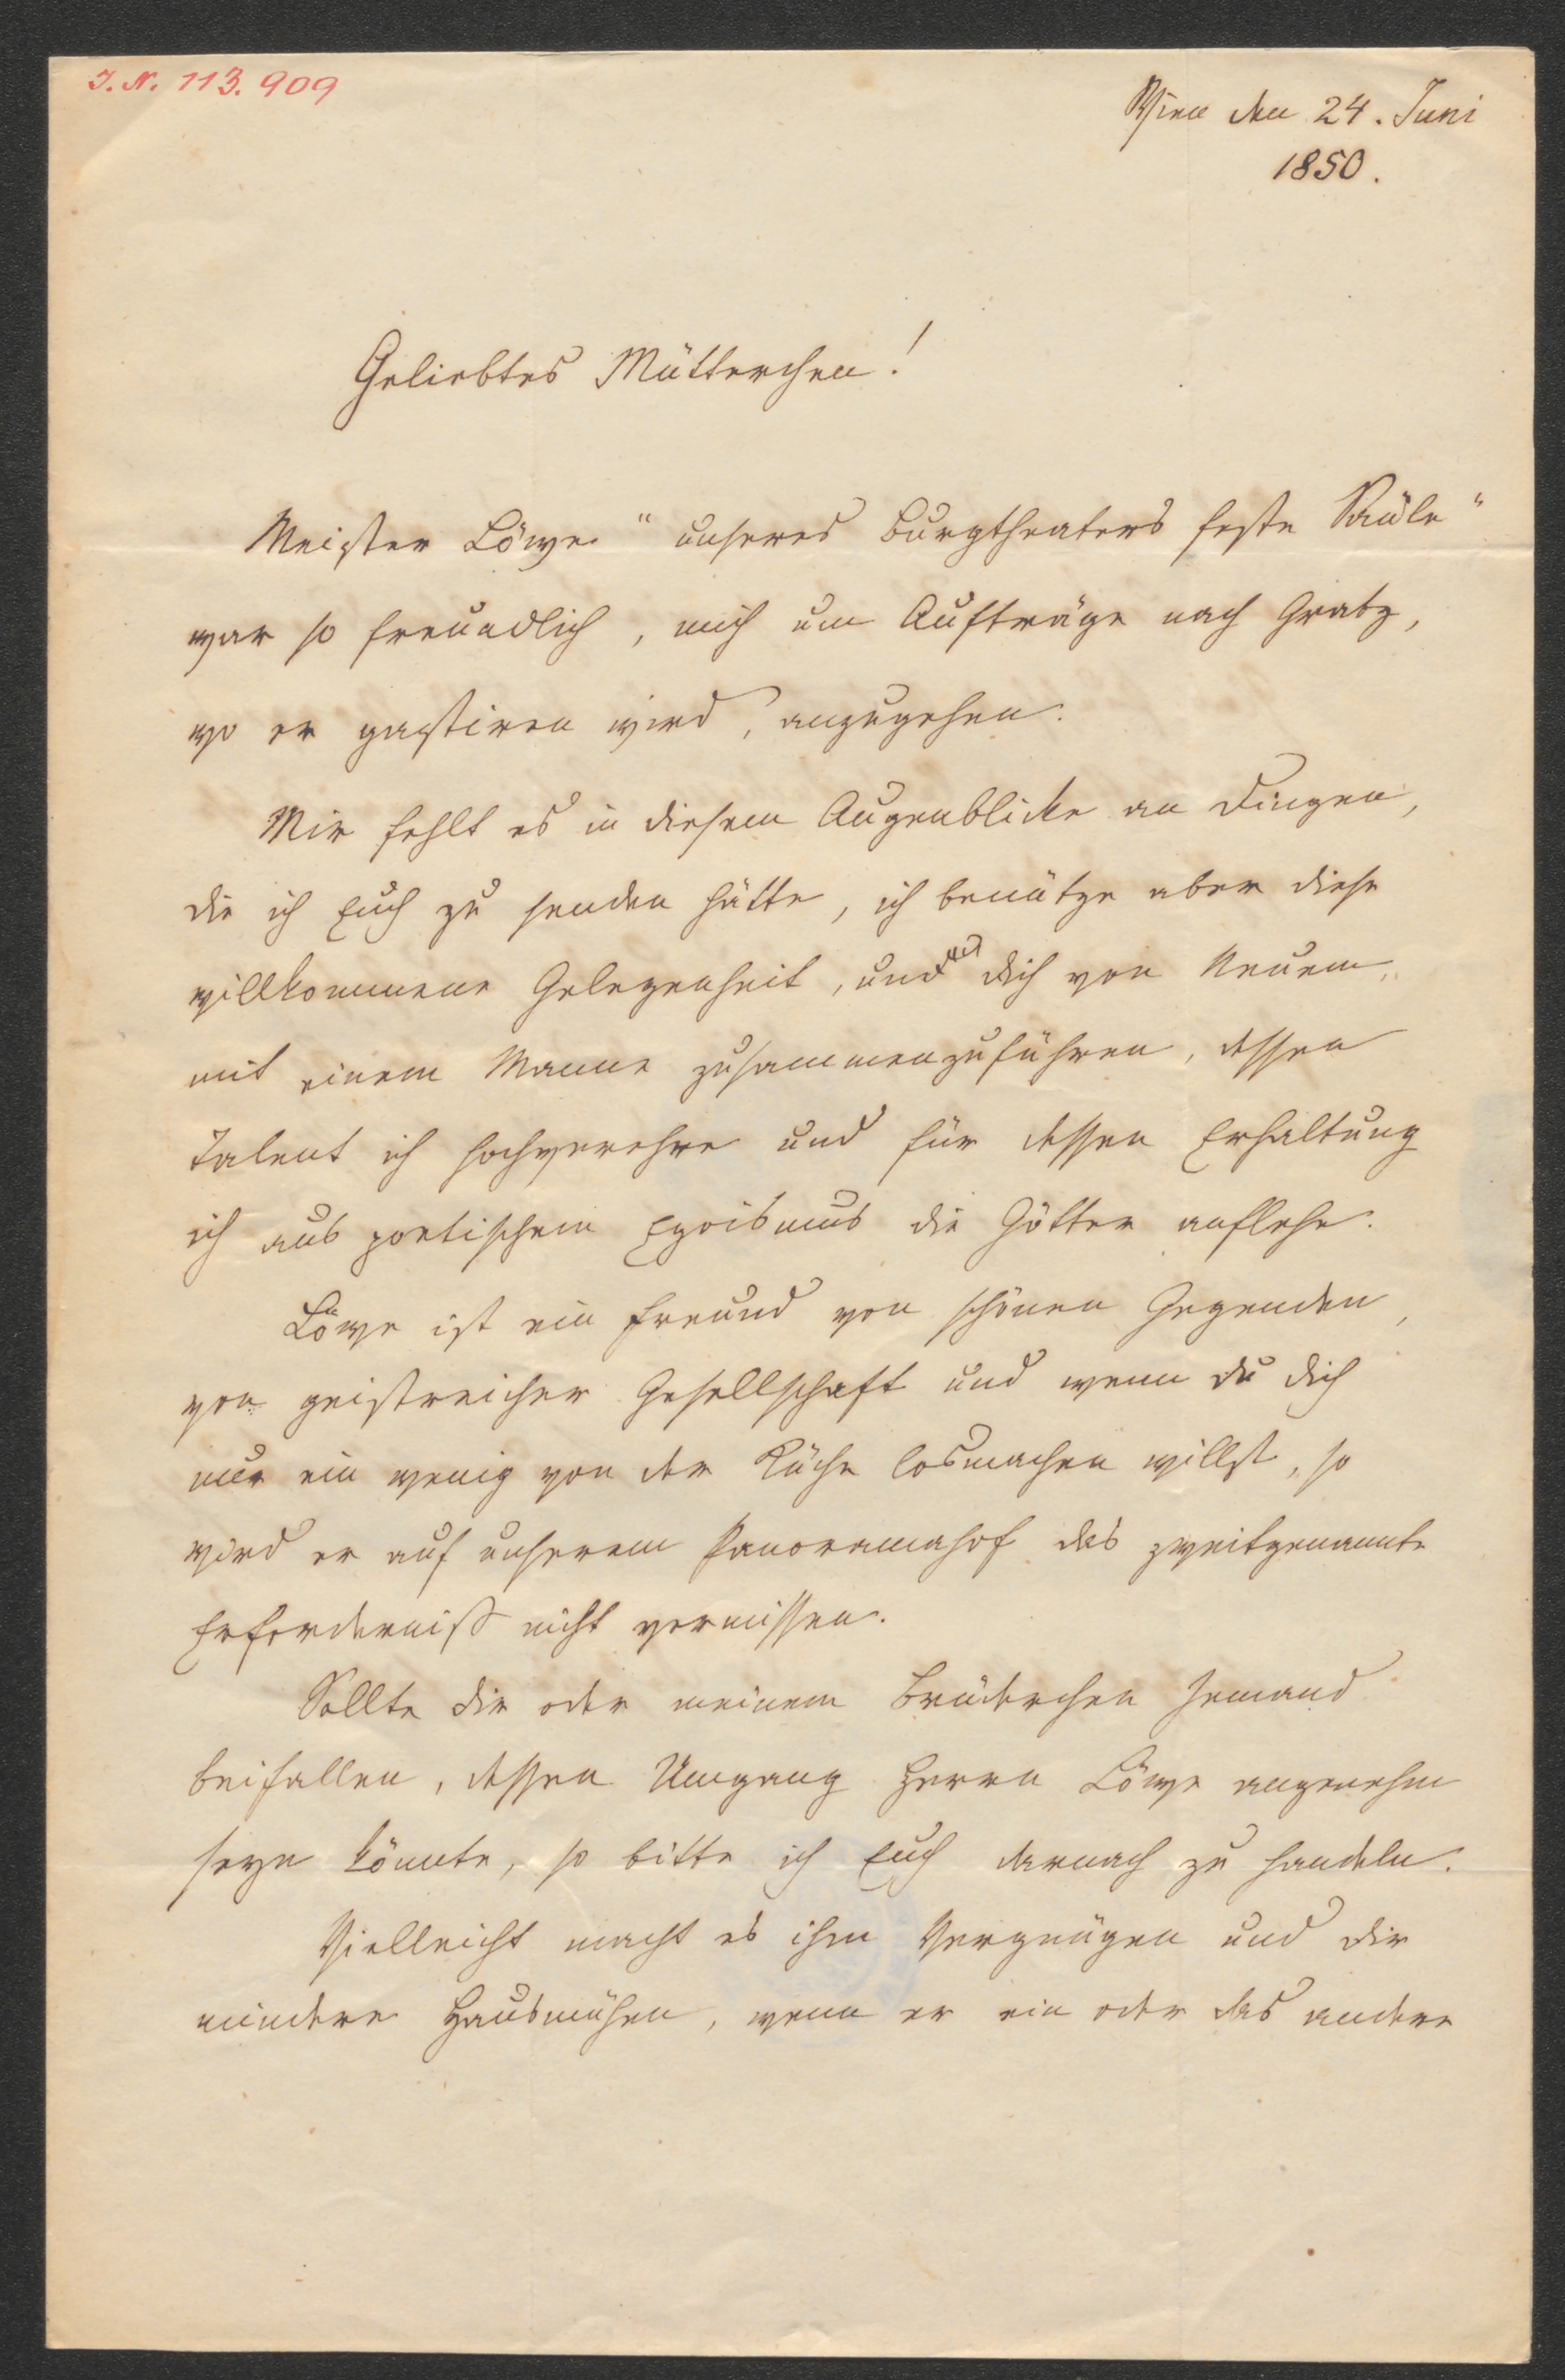 I. N. 113.909
Wien den 24. Juni
1850.
Geliebtes Mütterchen!
Meister Löwe "unseres Burgtheaters feste Säule"
war so freundlich, mich um Aufträge nach Gratz,
wo er gastiren wird, anzugehen.
Mir fehlt es in diesem Augenblicke an Dingen,
die ich Euch zu senden hätte, ich benütze aber diese
willkommene Gelegenheit, und dich von Neuem
mit einem Manne zusammenzuführen, dessen
Talent ich hochverehre und für dessen Erhaltung
ich aus poetischem Egoismus die Götter anflehe.
Löwe ist ein Freund von schönen Gegenden,
von geistreicher Gesellschaft und wenn du dich
nur ein wenig von der Küche losmachen willst, so
wird er auf unserem Panoramahof das zweitgenannte
Erforderniß nicht vermissen.
Sollte dir oder meinem Brüderchen Jemand
beifallen, dessen Umgang Herrn Löwe angenehm
seyn könnte, so bitte ich Euch darnach zu handeln.
Vielleicht macht es ihm Vergnügen und dir
mindere Hausmühen, wenn er ein oder das andere